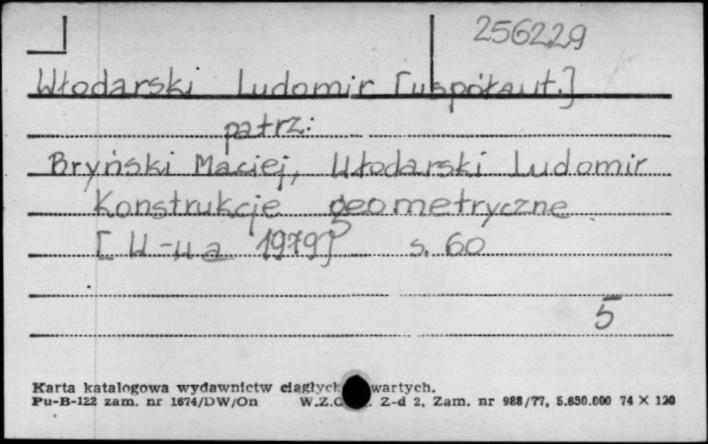 256229
Włodarski Ludomir [współaut.]
patrz:
Bryński Maciej, Włodarski Ludomir
Konstrukcje geometryczne
[W-wa 1979] s. 60
5
Karta katalogowa wydawnictw ciągłych wartych.
Pu-B-122 zam. nr 1674/DW/On W.Z.G. Z-d 2, Zam. nr 988/77, 5.650.000 74 X 120